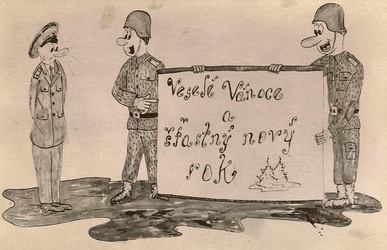 Veselé Vánoce
a
šťastný nový
rok